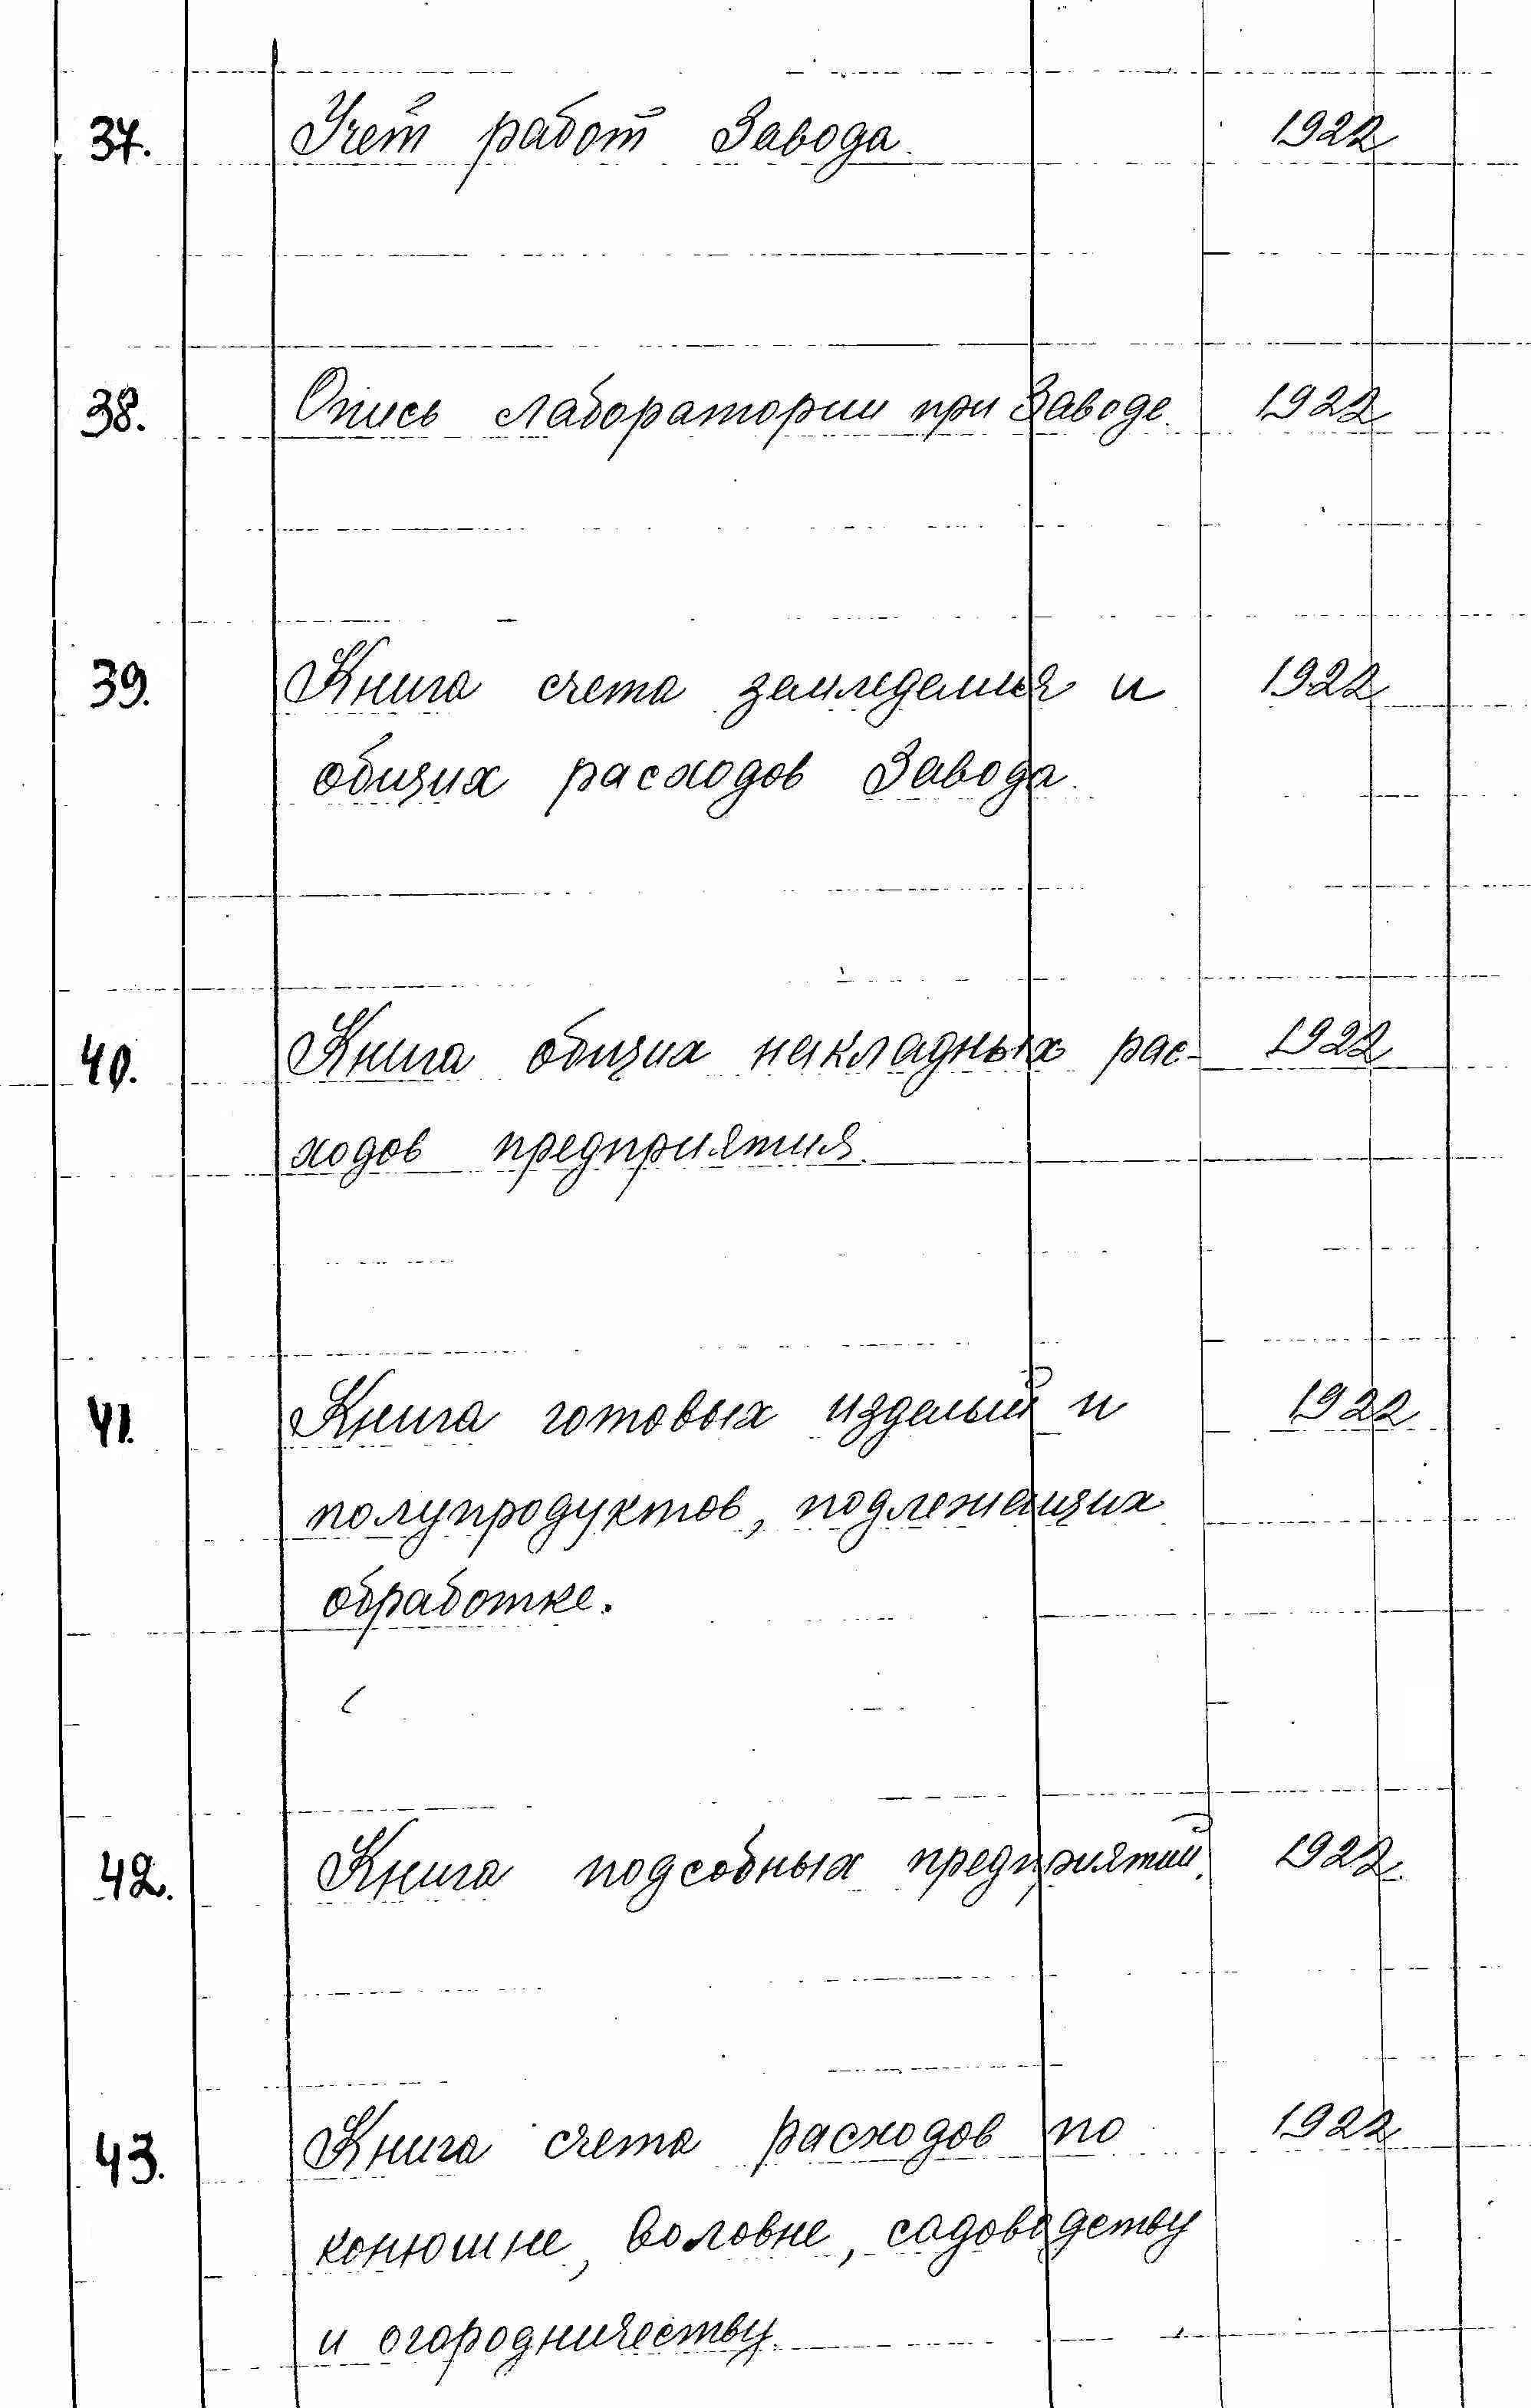 37. Учет работ Завода. 1922
38. Опись лаборатории при Заводе. 1922
39. Книга счета земледелия и 1922
общих расходов Завода.
40. Книга общих накладных рас- 1922
ходов предприятия.
41. Книга готовых изделий и 1922
полупродуктов, подлежащих
обработке.
42. Книга подсобных предприятий. 1922
43. Книга счета расходов по 1922
конюшне, воловне, садоводству
и огородничеству.